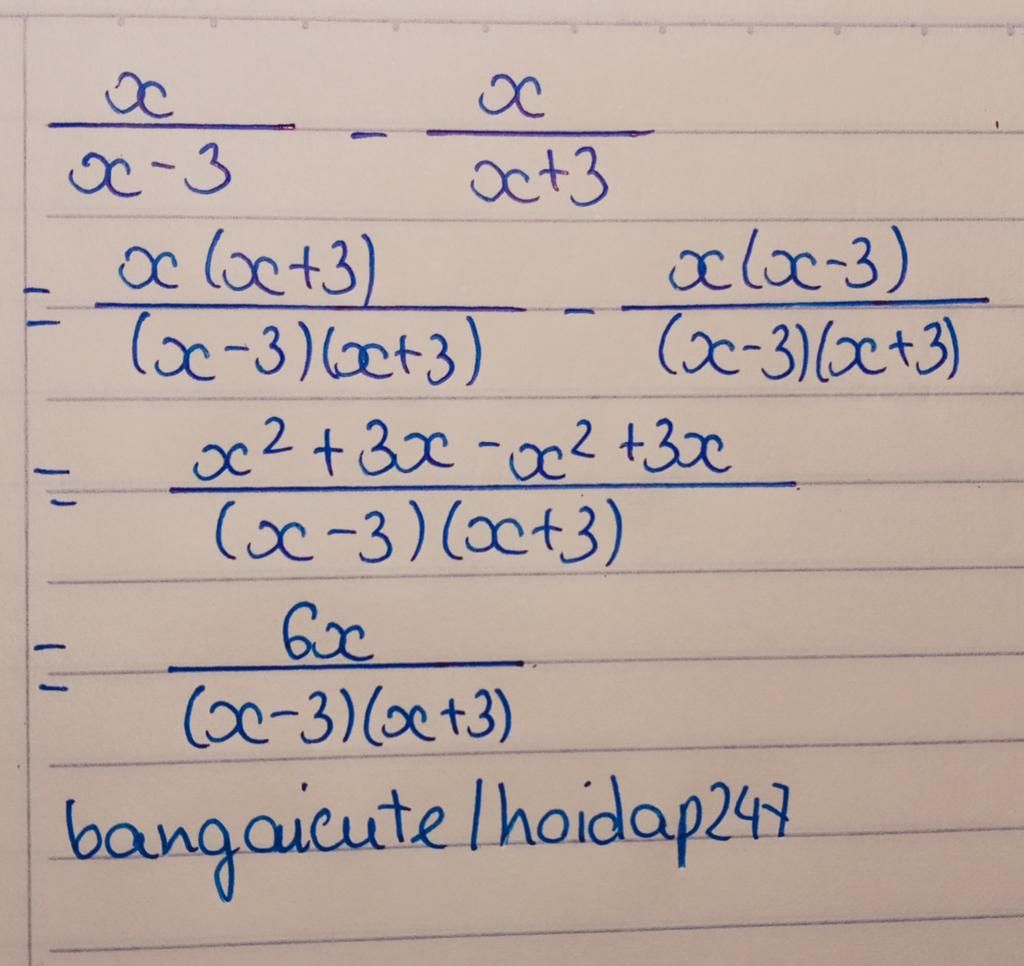 x/(x-3) - x/(x+3)
= x(x+3)/((x-3)(x+3)) - x(x-3)/((x-3)(x+3))
= (x² + 3x - x² + 3x)/((x-3)(x+3))
= 6x/((x-3)(x+3))
bangaicute/hoidap247